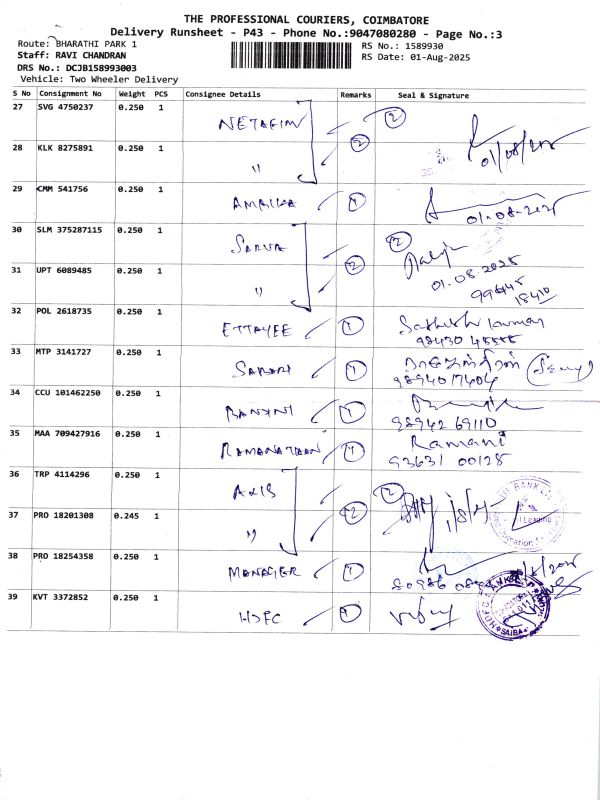 THE PROFESSIONAL COURIERS, COIMBATORE
Delivery Runsheet - P43 - Phone No.:9047080280 - Page No.:3
Route: BHARATHI PARK 1
RS No.: 1589930
Staff: RAVI CHANDRAN
RS Date: 01-Aug-2025
DRS No.: DCJB158993003
Vehicle: Two Wheeler Delivery
S No Consignment No Weight PCS Consignee Details Remarks Seal & Signature
27 SVG 4750237 0.250 1 NETAFIM 2
28 KLK 8275891 0.250 1 " 2 01/08/2025
29 CMM 541756 0.250 1 AMBIKA 1 01-08-2025
30 SLM 375287115 0.250 1 SARVA 2
31 UPT 6089485 0.250 1 " 2 01.08.2025
32 POL 2618735 0.250 1 ETTAYEE 1 Sathish kumar
98430 45555
33 MTP 3141727 0.250 1 1
9894017404
34 CCU 101462250 0.250 1 1
98942 69110
35 MAA 709427916 0.250 1 RAMANATHAN 1 Ramani
93631 00128
36 TRP 4114296 0.250 1 AXIS 2
37 PRO 18201308 0.245 1 " 2
38 PRO 18254358 0.250 1 MANAGER 1
39 KVT 3372852 0.250 1 HDFC 1